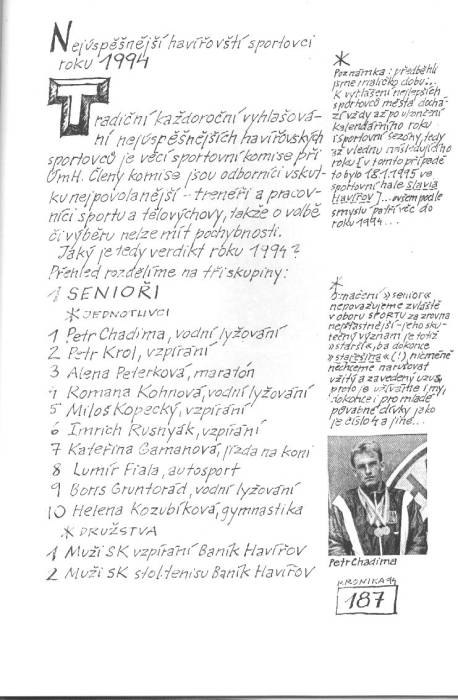 Nejúspěšnější havířovští sportovci
roku 1994
Tradiční každoroční vyhlašová-
ní nejúspěšnějších havířovských
sportovců je věcí sportovní komise při
ÚmH. Členy komise jsou odborníci vskut-
ku nejpovolanější – trenéři a pracov-
níci sportu a tělovýchovy, takže o volbě
či výběru nelze mít pochybnosti.
Jaký je tedy verdikt roku 1994?
Přehled rozdělíme na tři skupiny:
1 SENIOŘI
* JEDNOTLIVCI
1 Petr Chadima, vodní lyžování
2 Petr Krol, vzpírání
3 Alena Peterková, maratón
4 Romana Kohnová, vodní lyžování
5 Miloš Kopecký, vzpírání
6 Imrich Rusnyák, vzpírání
7 Kateřina Gamanová, jízda na koni
8 Lumír Fiala, autosport
9 Boris Gruntorád, vodní lyžování
10 Helena Kozubíková, gymnastika
* DRUŽSTVA
1 Muži SK vzpírání Baník Havířov
2 Muži SK stol. tenisu Baník Havířov
*
Poznámka: předběhli
jsme maličko dobu...
K vyhlášení nejlepších
sportovců města dochá-
zí vždy až po ukončení
kalendářního roku
i sportovní sezóny, tedy
až v lednu následujícího
roku [v tomto případě
to bylo 18.1.1995 ve
sportovní hale Slavia
Havířov]... ovšem podle
smyslu patří věc do
roku 1994...
*
Označení »senior«
nepovažujeme zvláště
v oboru SPORTU za zrovna
nejšťastnější – jeho sku-
tečný význam je totiž
»starší«, ba dokonce
»stařešina« (!) nicméně
nechceme narušovat
vžitý a zavedený úzus,
proto je užívejte i my,
dokonce i pro mladé
půvabné dívky jako
je číslo 4 a jiné...
Petr Chadima
KRONIKA 94
187